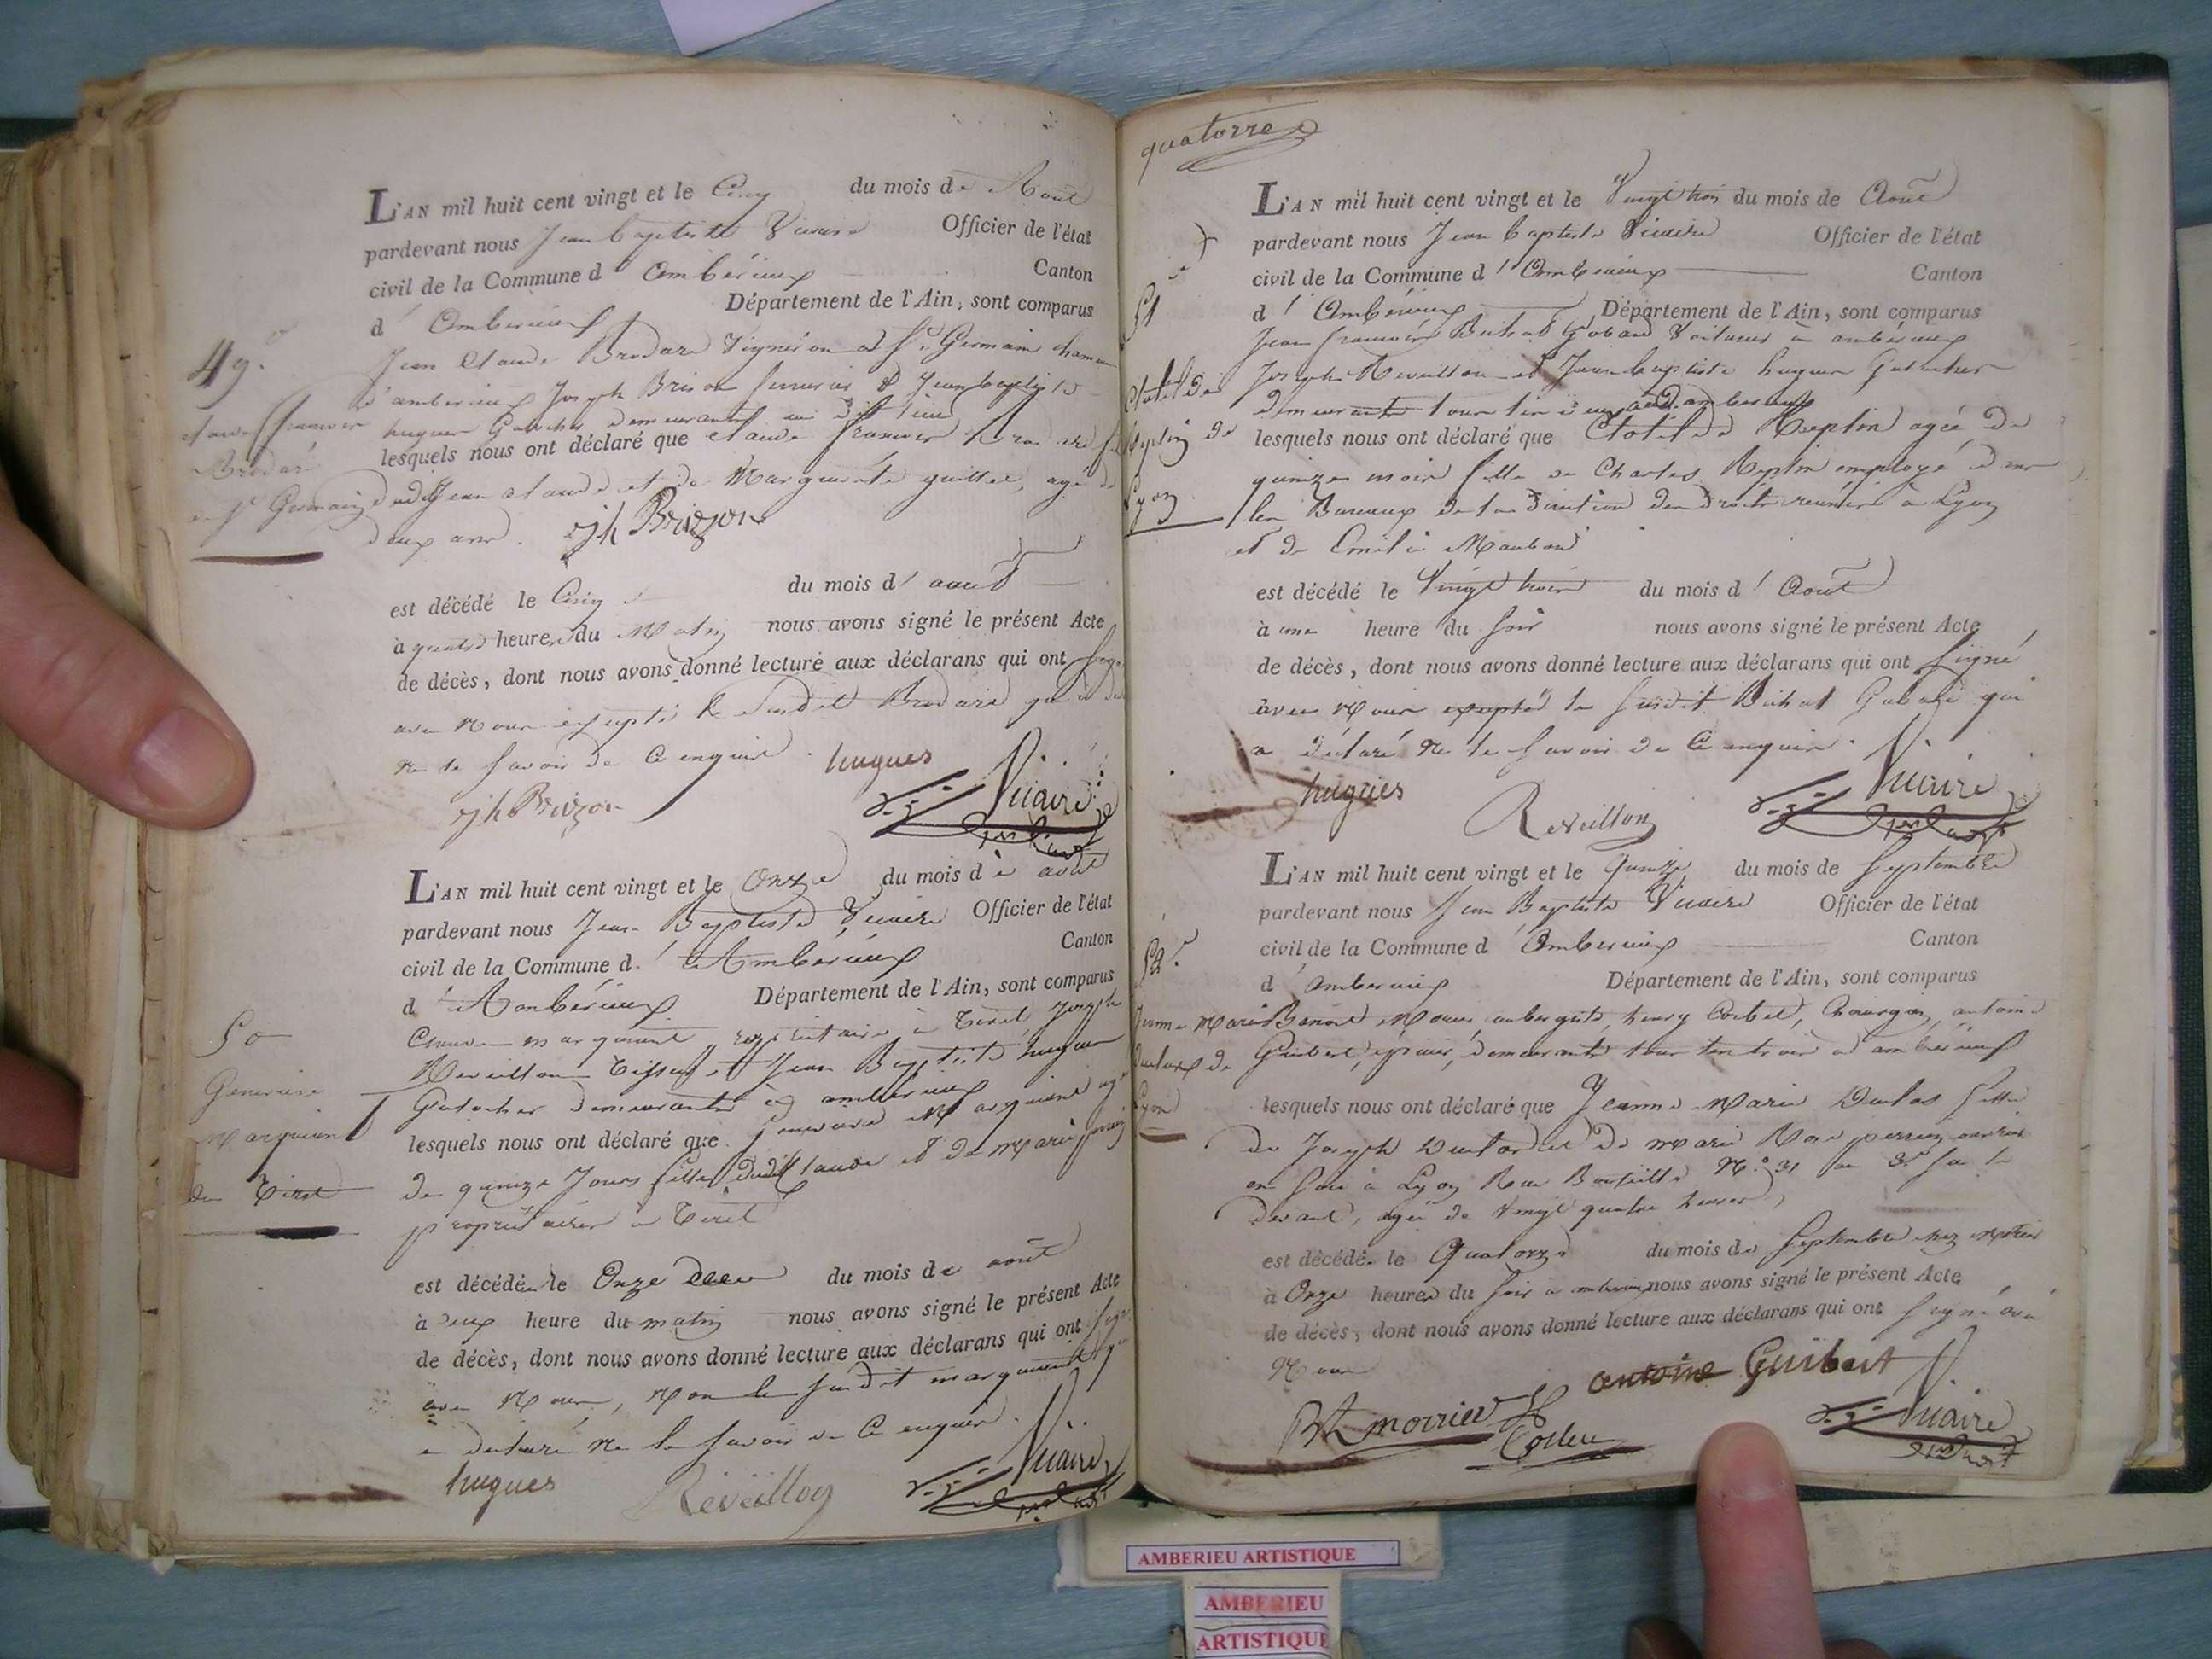 L'AN mil huit cent vingt et le Cinq du mois de Aout
pardevant nous Jean baptiste Vicaire Officier de l'état
civil de la Commune d' ambérieux Canton
d' amberieux Département de l'Ain, sont comparus
49.e
Jean Claude Brodard Vigneron a St Germain
d'amberieux Joseph Brison & Jean baptiste
hugues demeurants
claude francois
Brodard
St Germain
lesquels nous ont déclaré que claude francois
dudit Jean claude et de Marguerite guillet, agé de
deux ans. jh Brizon
est décédé le Cinq du mois d' aout
à quatre heures du Matin nous avons signé le présent Acte
de décès, dont nous avons donné lecture aux déclarans qui ont signé
avec Nous excepté le Susdit Brodard
ne le savoir de ce enquis. hugues
jh Brizon Vicaire
L'AN mil huit cent vingt et le Onze du mois de aout
pardevant nous Jean Baptiste Vicaire Officier de l'état
civil de la Commune d' Ambérieux Canton
d' Ambérieux Département de l'Ain, sont comparus
50
Claude marguient propriétaire à Tiret, Joseph
Reveillon Tissier, et Jean Baptiste hugues
demeurants à ambérieux
Marguient
de Tiret
lesquels nous ont déclaré que Marguient
de quinze Jours fille dudit Claude et de Marie
propriétaires à Tiret
est décédée le Onze du mois de aout
à deux heure du matin nous avons signé le présent Acte
de décès, dont nous avons donné lecture aux déclarans qui ont signé
avec Nous, Non le susdit marguient qui
a declaré ne le savoir de ce enquis.
hugues Réveillon Vicaire
quatorze
L'AN mil huit cent vingt et le Vingt trois du mois de Aout
pardevant nous Jean baptiste Vicaire Officier de l'état
civil de la Commune d' Ambérieux Canton
d' Ambérieux Département de l'Ain, sont comparus
51
Jean francois Bichat Gobard Voiturier à ambérieux
Joseph Reveillon et Jean baptiste hugues
demeurants tous les deux audit amberieux
Clotilde
Replin de
Lyon
lesquels nous ont déclaré que Clotilde Replin agée de
quinze mois fille de Charles Replin employé dans
les Bureaux de la Direction des droits réunis à Lyon
et de Emilie
est décédé le Vingt trois du mois d' Aout
à une heure du soir nous avons signé le présent Acte
de décès, dont nous avons donné lecture aux déclarans qui ont signé
avec Nous excepté le susdit Bichat Gobard qui
a déclaré ne le savoir de ce enquis.
hugues Reveillon Vicaire
L'AN mil huit cent vingt et le Quinze du mois de Septembre
pardevant nous Jean Baptiste Vicaire Officier de l'état
civil de la Commune d' Ambérieux Canton
d' amberieux Département de l'Ain, sont comparus
52.e
Jeanne Marie
Duclos de
Lyon
Benoit aubergiste, henry Chirurgien, antoine
Guibert, épicier, demeurants tous les trois à ambérieux
lesquels nous ont déclaré que Jeanne Marie Duclos fille
de Joseph Duclos et de marie
en soie à Lyon Rue N.o 31 au 3e sur le
devant, agée de Vingt quatre heures
est décédée le Quatorze du mois de Septembre chez
à Onze heures du soir à nous avons signé le présent Acte
de décès, dont nous avons donné lecture aux déclarans qui ont signé avec
Nous
antoine Guibert
morrier Vicaire
AMBERIEU ARTISTIQUE
AMBERIEU
ARTISTIQUE